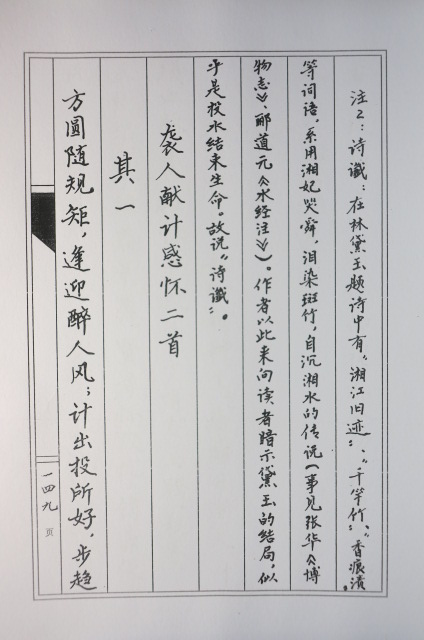 注2：诗谶：在林黛玉题诗中有“湘江旧迹”、“千竿竹”、“香痕渍”
等词语，系用湘妃哭舜，泪染斑竹，自沉湘水的传说（事见张华《博
物志》、郦道元《水经注》）。作者以此来向读者暗示黛玉的结局，似
乎是投水结束生命。故说“诗谶”。
袭人献计感怀二首
其一
方圆随规矩，逢迎醉人风；计出投所好，步趋
一四九页